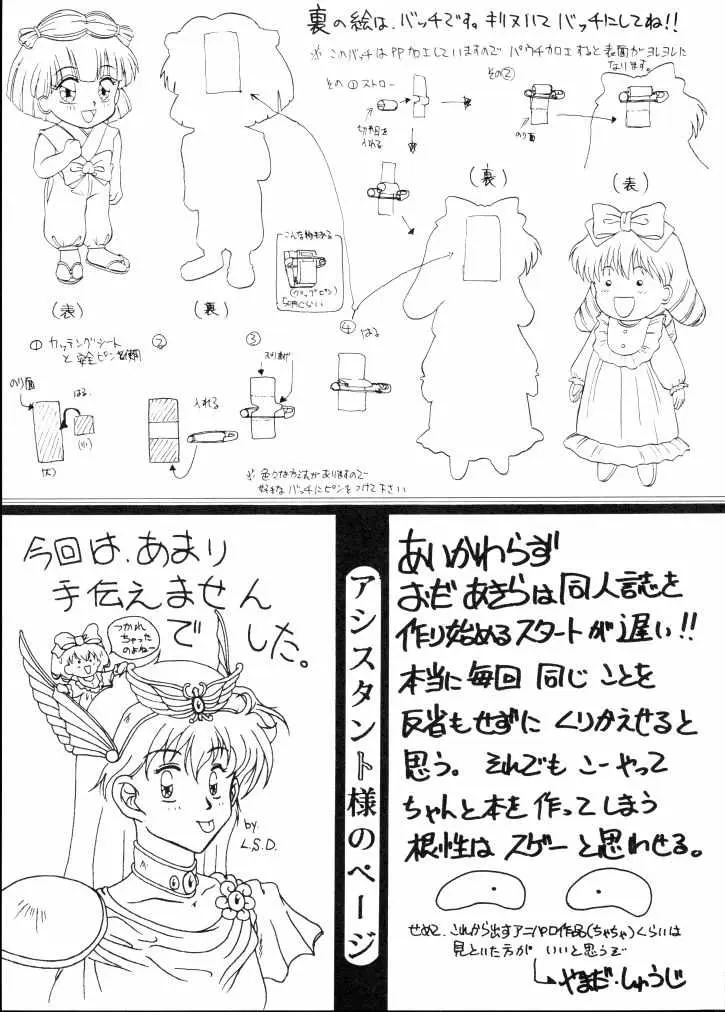 裏の絵は、バッチです。キリヌいて バッチにしてね!!
※ このバッチはPP加工していますので パウチ加工すると表面がヨレヨレに
なります。
その①ストロー
切れ目を
入れる
その②
のり面
(裏)
(表)
(表)
(裏)
こんな物もある
(クリップピン)
① カッテングシート
と 安全ピン
のり面
はる
(大)
(小)
②
入れる
③
④ はる
※ 色々な方法がありますので
好きなバッチにピンをつけて下さい
今回は、あまり
手伝えません
でした。
つかれ
ちゃった
のよねー
by.
L.S.D.
アシスタント様のページ
あいかわらず
おだ あきらは同人誌を
作り始めるスタートが遅い!!
本当に毎回 同じ ことを
反省もせずに くりかえせると
思う。それでも こーやって
ちゃんと本を 作ってしまう
根性は スゲーと思わせる。
せめて、これから出すアニパロ作品(ちゃちゃ)くらいは
見といた方が いいと思うぞ
やまだ・しゅうじ